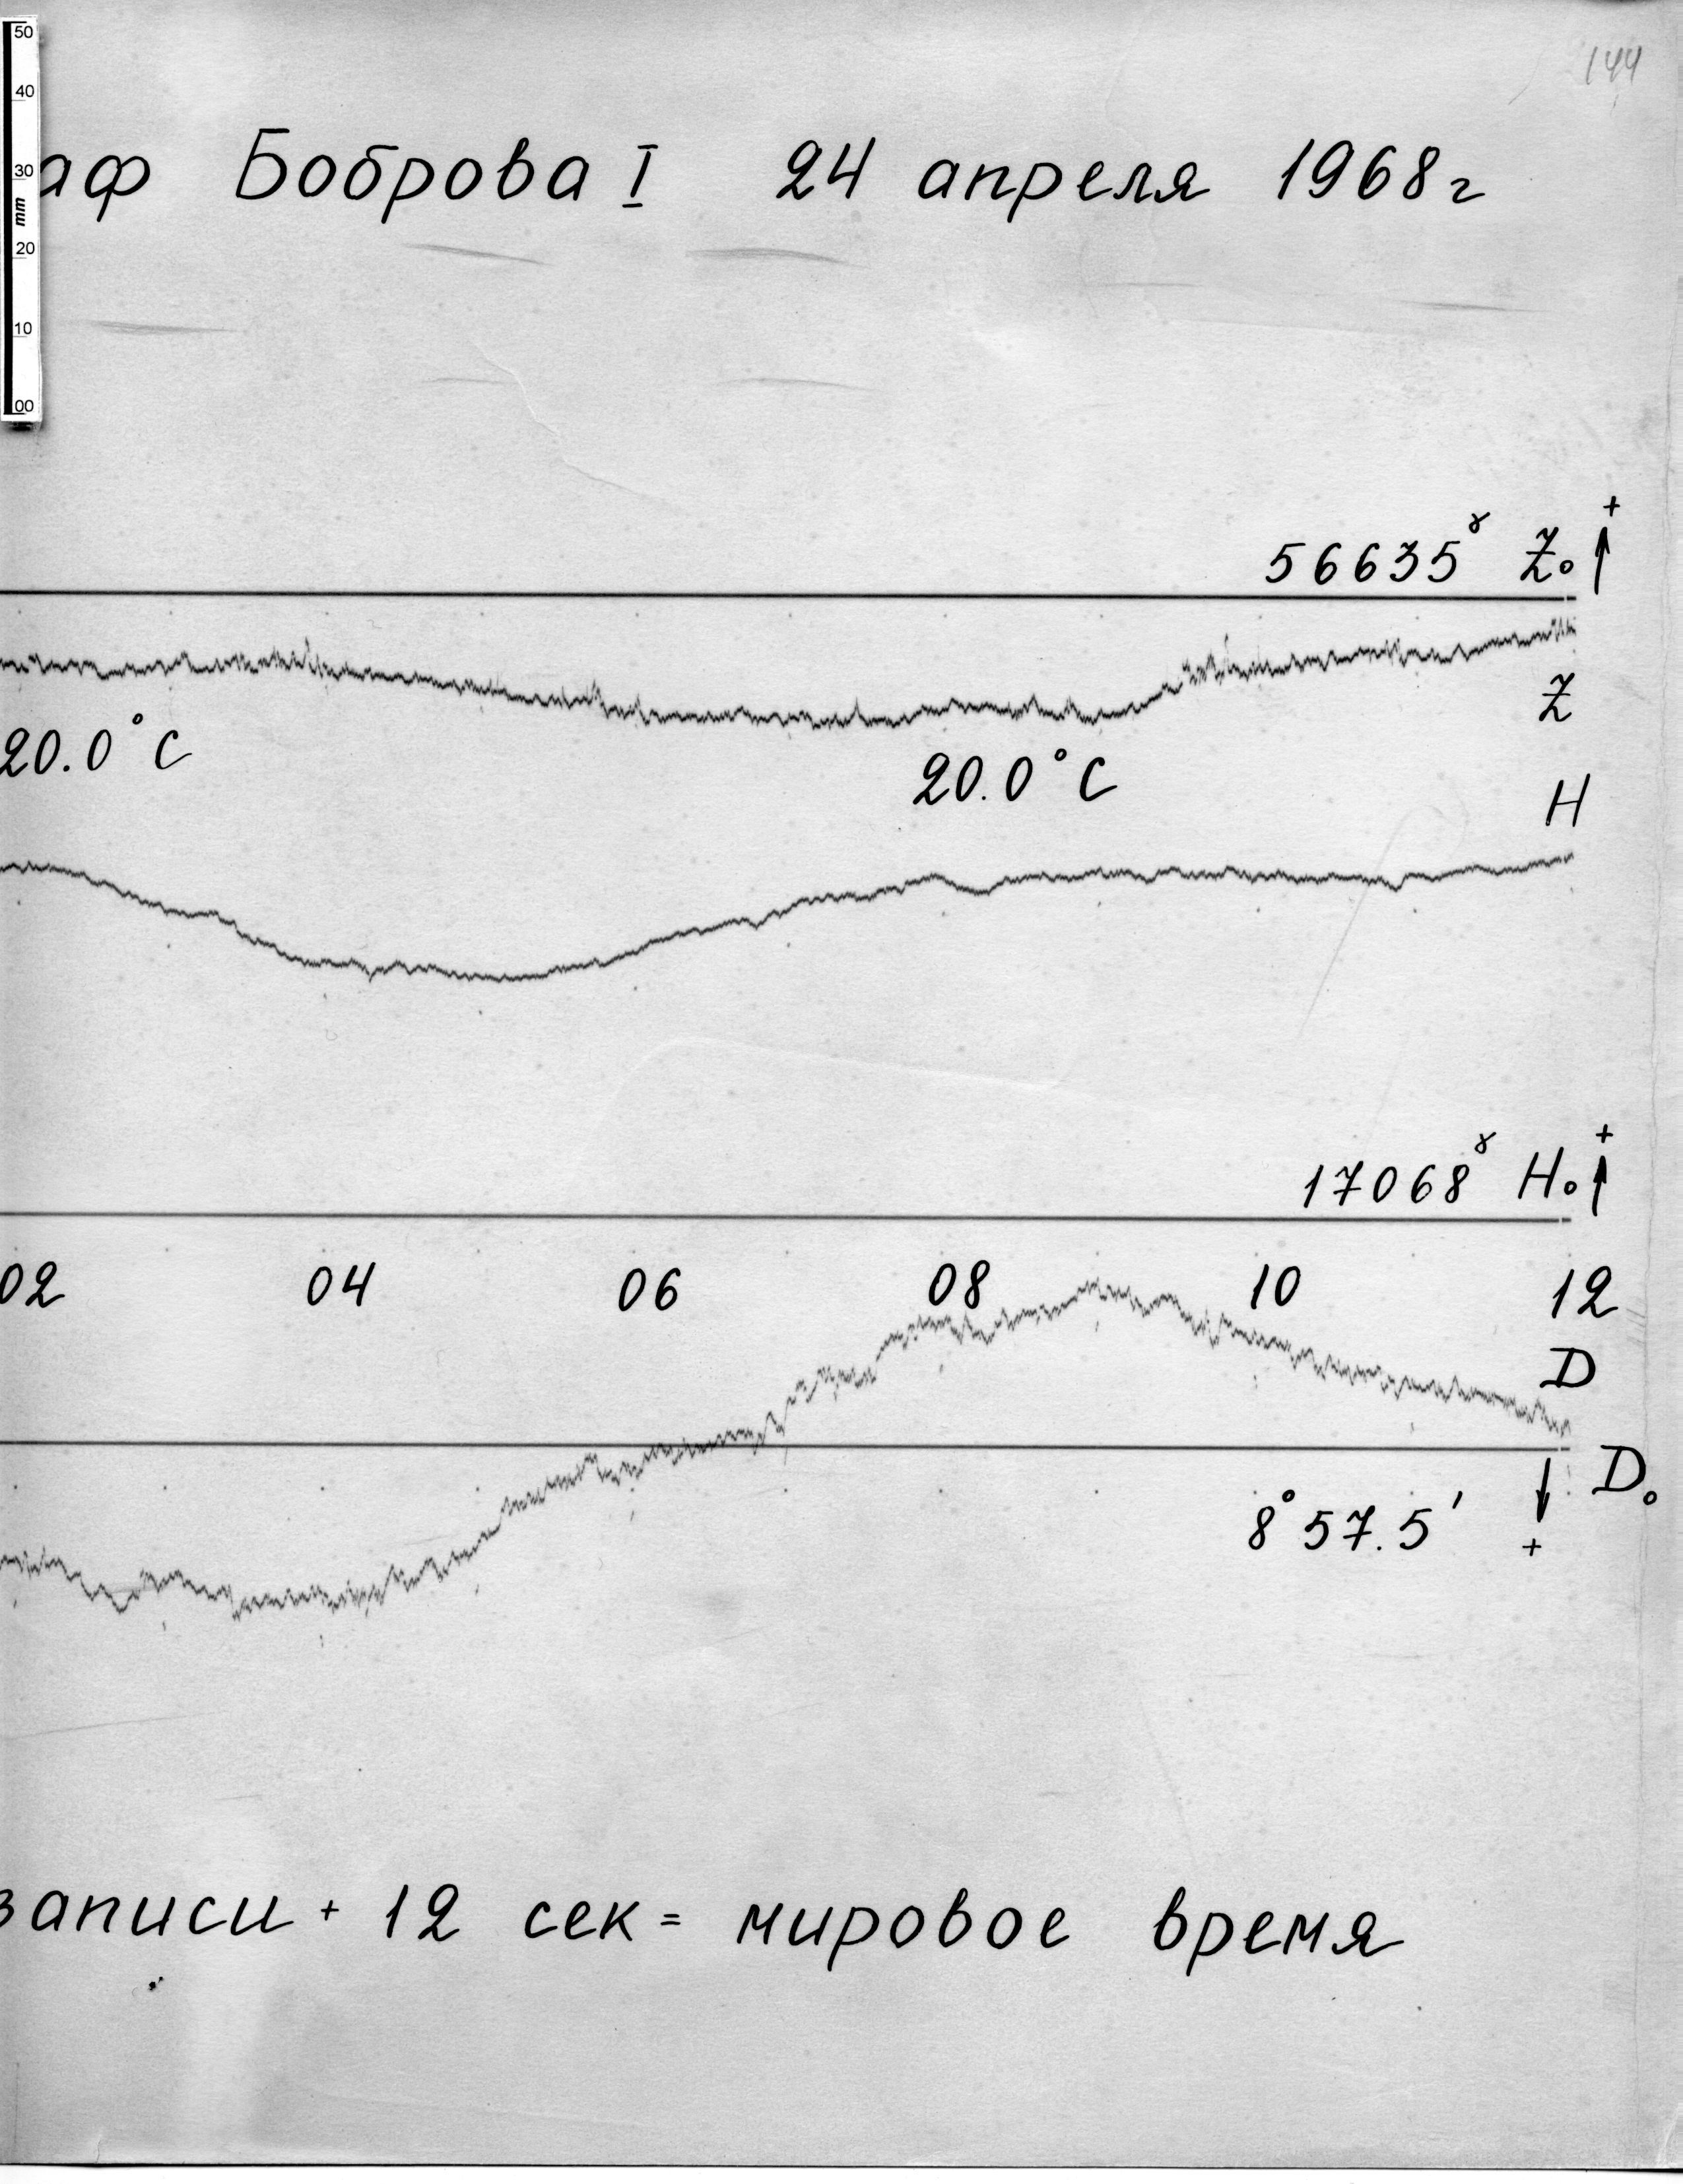 144
50
40
30
mm
20
10
00
аф Боброва I 24 апреля 1968г
+
56635ᵞ Z₀
Z
20.0°C
20.0°C
H
+
17068ᵞ H₀
02 04 06 08 10 12
D
D₀
8°57.5′
+
записи + 12 сек = мировое время